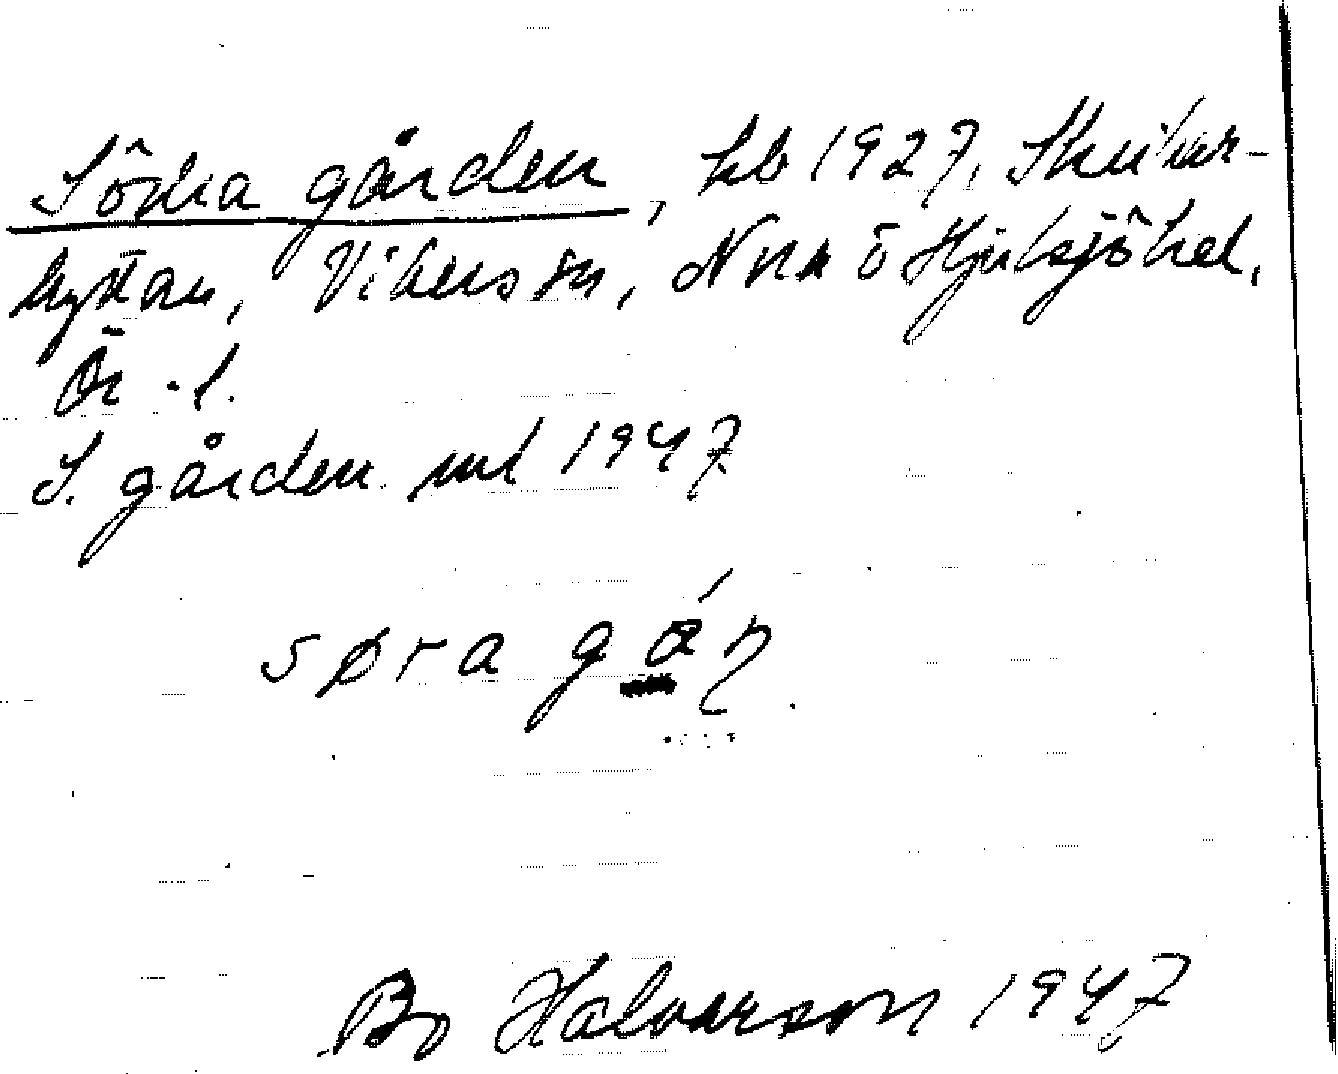 Södra gården, hb 1927, Skrikar-
hyttan, Vikers sn, Nora o Hjulsjö hd,
Ör. l.
S. gården ml 1947
søra gáṇ
Bo Halvarson 1947